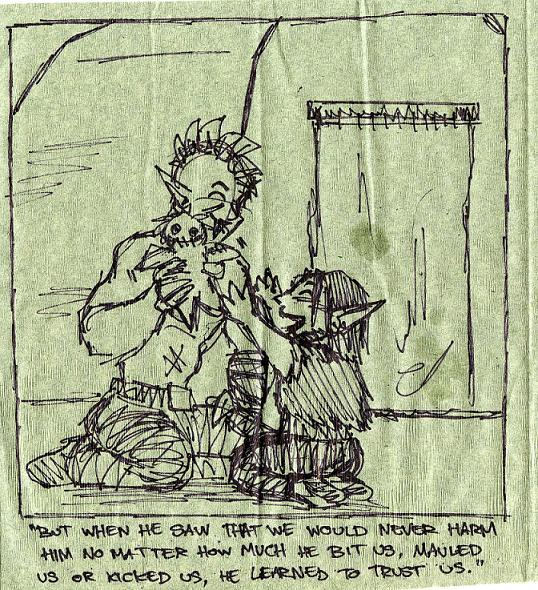 "BUT WHEN HE SAW THAT WE WOULD NEVER HARM
HIM NO MATTER HOW MUCH HE BIT US, MAULED
US OR KICKED US, HE LEARNED TO TRUST US."